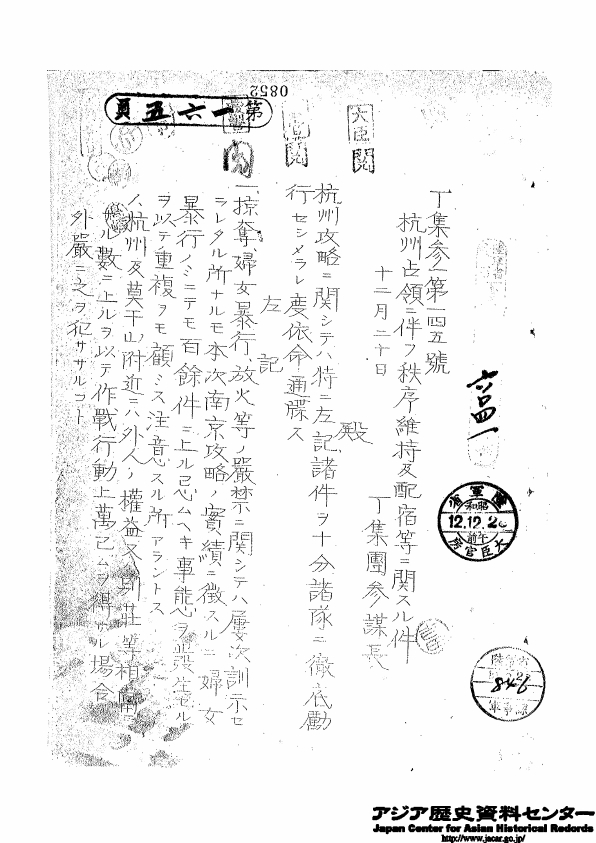 0852
第一六五頁
大臣 閲
丁集參一第一四五號
杭州占領ニ伴フ秩序維持及配宿等ニ関スル件
十二月二十日
丁集團參謀長
殿
杭州攻略ニ関シテハ特ニ左記諸件ヲ十分諸隊ニ徹底勵
行セシメラレ度依命通牒ス
左記
一、掠奪婦女暴行、放火等ノ嚴禁ニ関シテハ屢次訓示セ
ラレタル所ナルモ本次南京攻略ノ實績ニ徴スルニ婦女
暴行ノミニテモ百餘件ニ上ル忌ムヘキ事態ヲ發生セル
ヲ以テ重複ヲモ顧ミス注意スル所アラントス
杭州及莫干山附近ニハ外人ノ權益又別荘等相當
數ニ上ルヲ以テ作戰行動上萬已ムヲ得サル場合
外嚴ニ之ヲ犯ササルコト
陸軍省
昭和
12.12.2
前
大臣官房
846
アジア歴史資料センター
Japan Center for Asian Historical Records
http://www.jacar.go.jp/